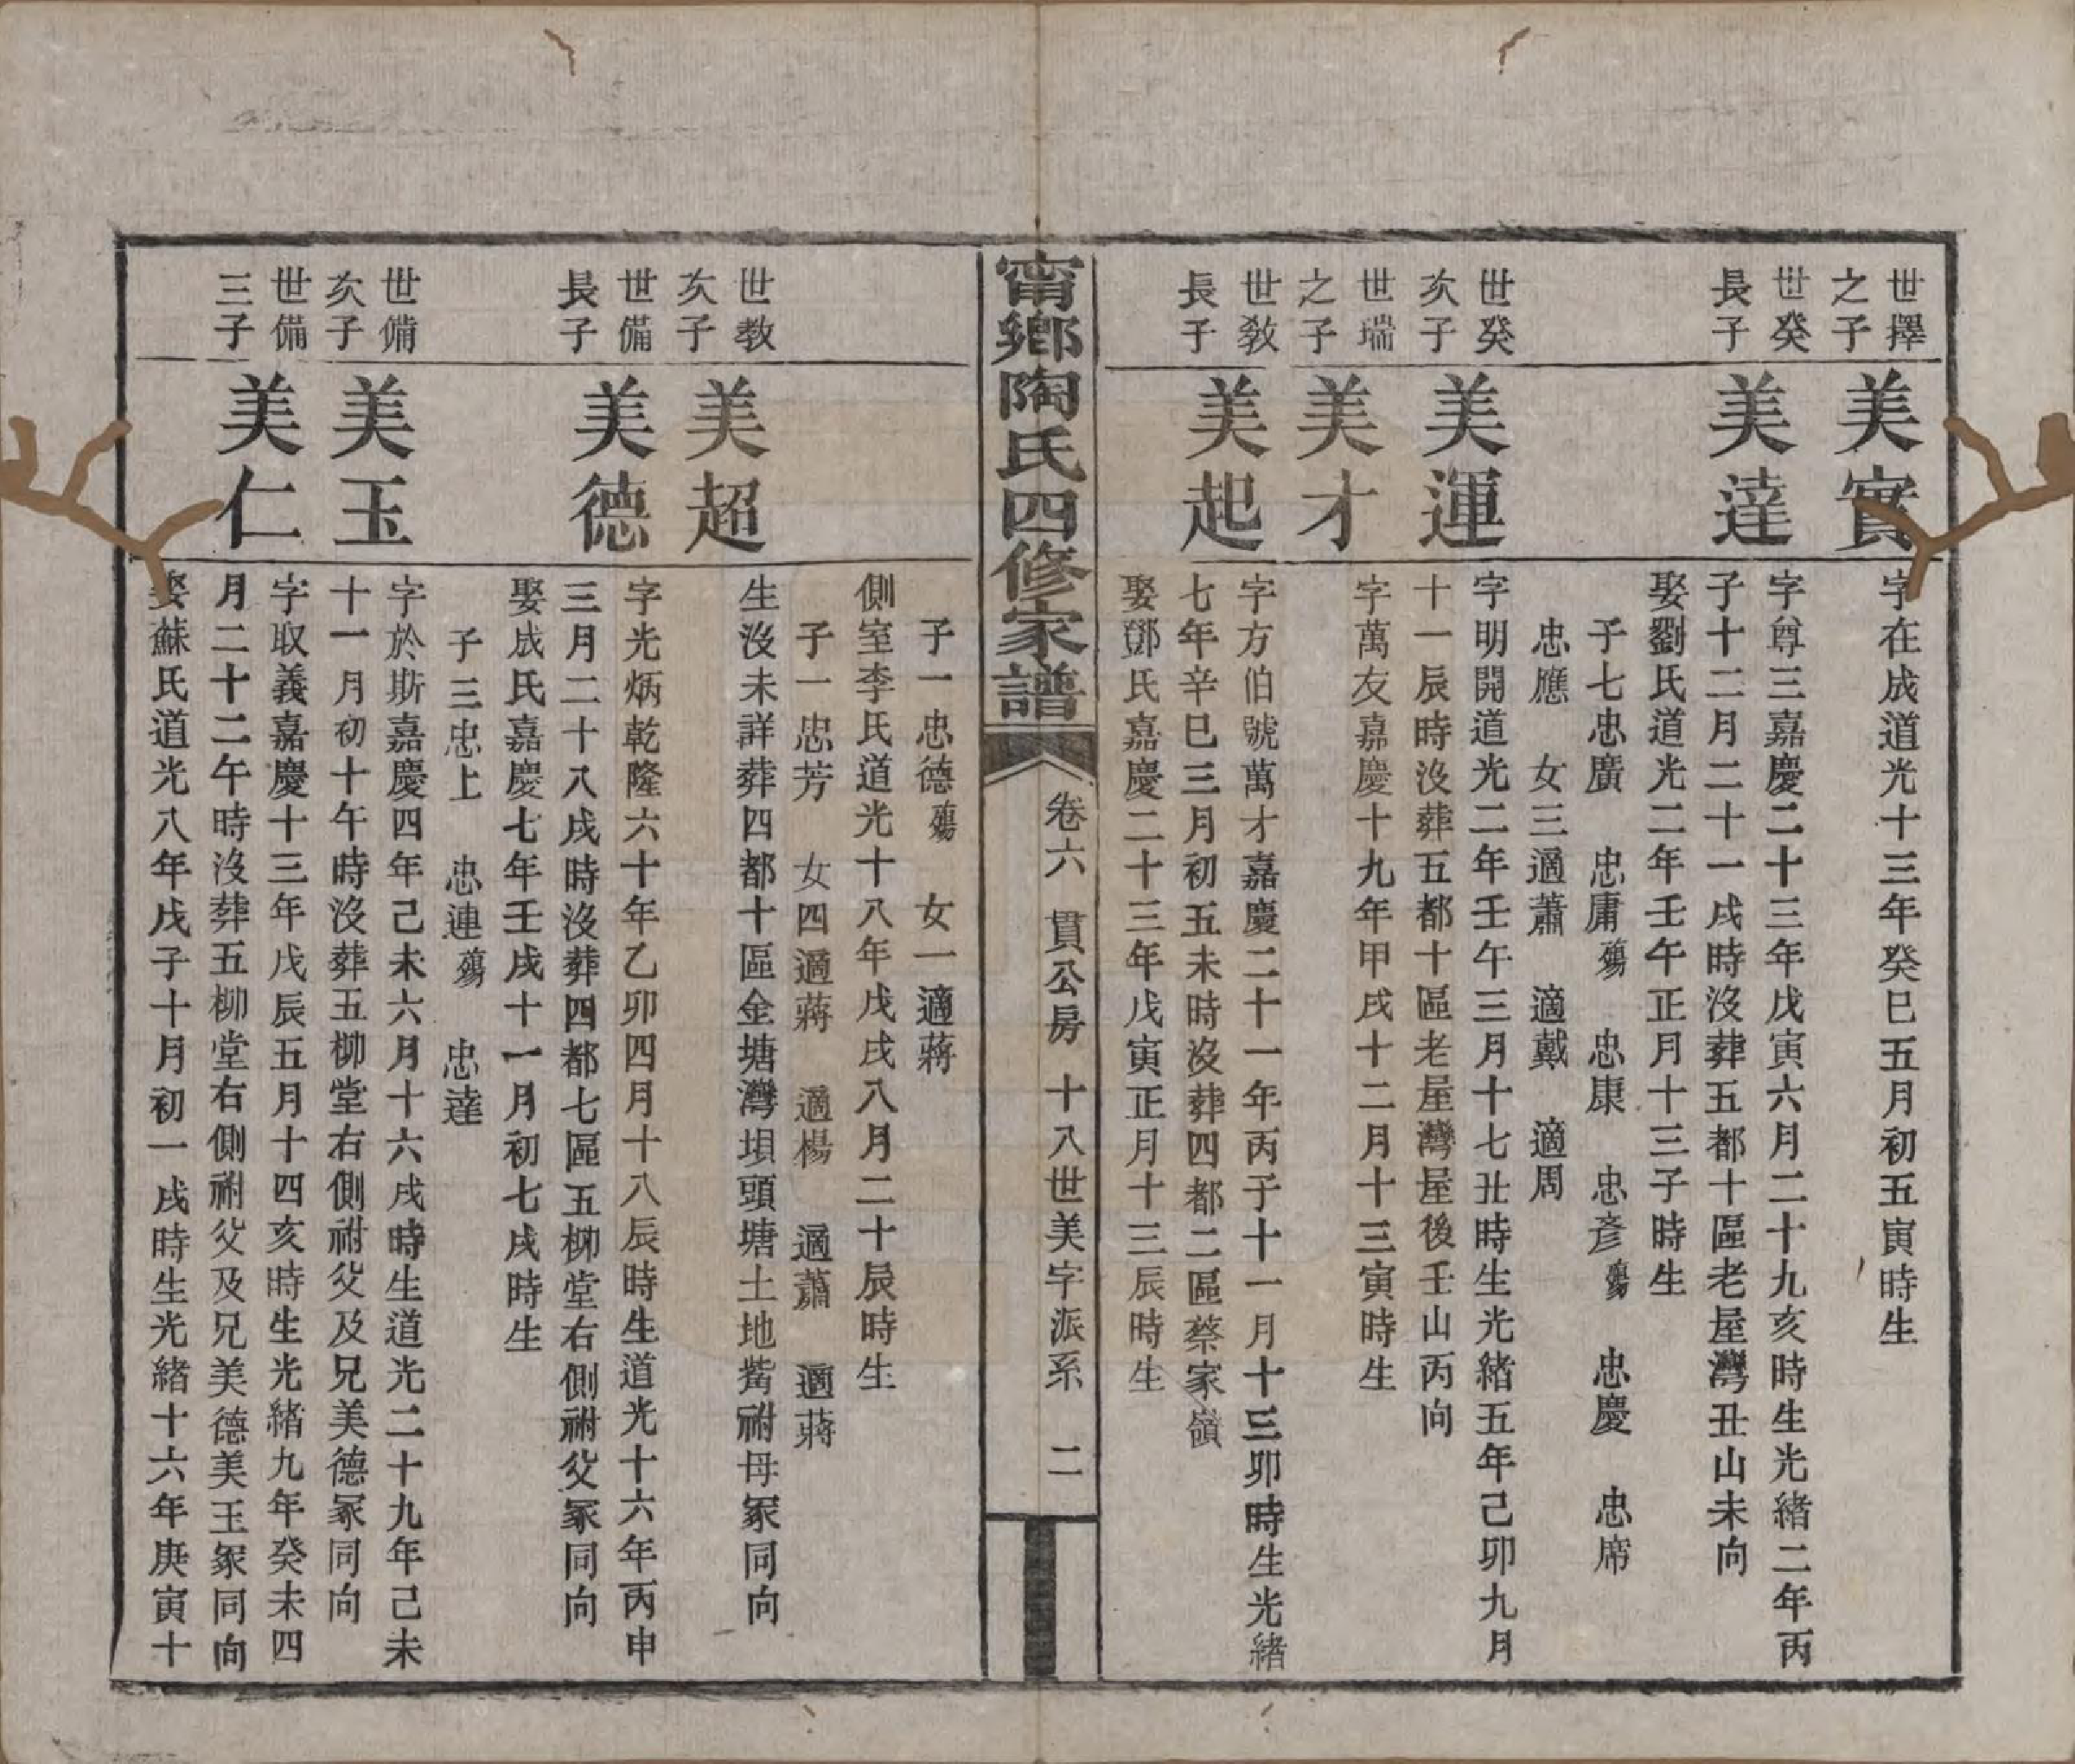 世擇
之子
美實
字在成道光十三年癸巳五月初五寅時生
世癸
長子
美達
字尊三嘉慶二十三年戊寅六月二十九亥時生光緒二年丙
子十二月二十一戌時沒葬五都十區老屋灣丑山未向
娶劉氏道光二年壬午正月十三子時生
子七忠廣 忠庸殤 忠康 忠彥殤 忠慶 忠席
忠應 女三適蕭 適戴 適周
世癸
次子
美運
字明開道光二年壬午三月十七丑時生光緒五年己卯九月
十一辰時沒葬五都十區老屋灣屋後壬山丙向
世瑞
之子
美才
字萬友嘉慶十九年甲戌十二月十三寅時生
世教
長子
美起
字方伯號萬才嘉慶二十一年丙子十一月十三卯時生光緒
七年辛巳三月初五未時沒葬四都二區蔡家嶺
娶鄧氏嘉慶二十三年戊寅正月十三辰時生
甯鄉陶氏四修家譜
卷六 貫公房 十八世美字派系 二
子一忠德殤 女一適蔣
側室李氏道光十八年戊戌八月二十辰時生
子一忠芳 女四適蔣 適楊 適蕭 適蔣
世教
次子
美超
生沒未詳葬四都十區金塘灣垻頭塘土地觜祔母冢同向
世備
長子
美德
字光炳乾隆六十年乙卯四月十八辰時生道光十六年丙申
三月二十八戌時沒葬四都七區五柳堂右側祔父冢同向
娶成氏嘉慶七年壬戌十一月初七戌時生
子三忠上 忠連殤 忠達
世備
次子
美玉
字於斯嘉慶四年己未六月十六戌時生道光二十九年己未
十一月初十午時沒葬五柳堂右側祔父及兄美德冢同向
世備
三子
美仁
字取義嘉慶十三年戊辰五月十四亥時生光緒九年癸未四
月二十二午時沒葬五柳堂右側祔父及兄美德美玉冢同向
娶蘇氏道光八年戊子十月初一戌時生光緒十六年庚寅十